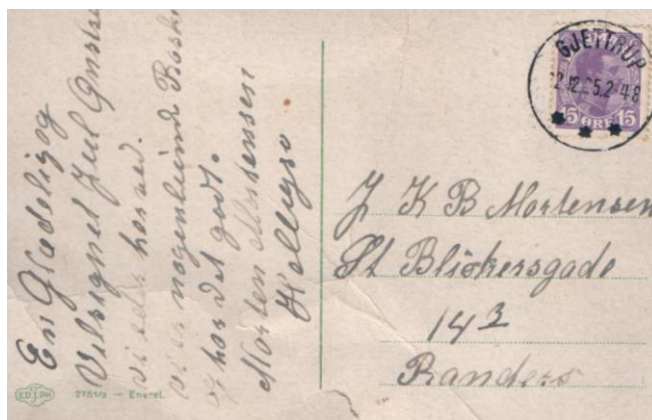 En Glædelig og
Velsignet Jul Ønskes
vi eder herved.
vi er nogenlunde Raske
og har det godt.
Morten Mortensen
GJETTRUP
15 ØRE 15
J K B Mortensen
St Blichersgade
14 3
Randers
2751/3 — Eneret.